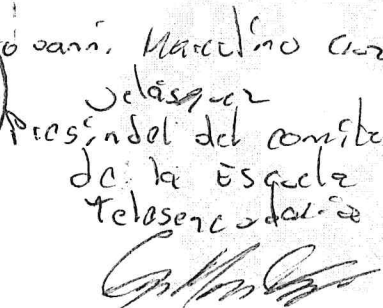 oanni Marcelino Cruz
Velásquez
Presindel del comite
de la Escuela
telesencodaria